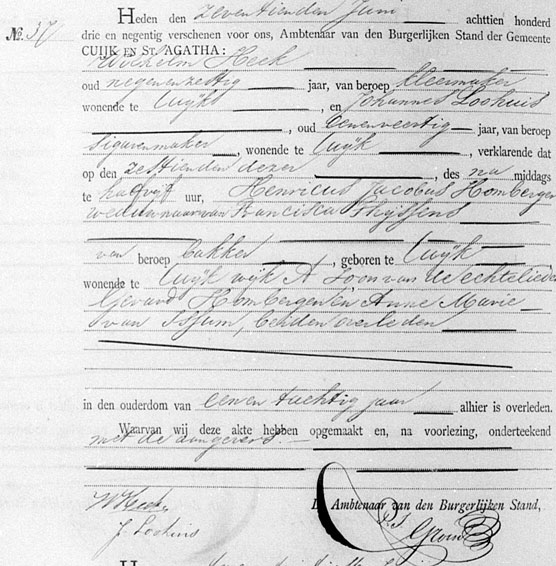 Heden den zeventienden Juni achttien honderd
No. 37 drie en negentig verschenen voor ons, Ambtenaar van den Burgerlijken Stand der Gemeente
CUIJK EN ST. AGATHA:
Wilhelm Heck
oud negenenzestig jaar, van beroep kleermaker
wonende te Cuijk, en Johannes Loohuis
, oud eenenveertig jaar, van beroep
sigarenmaker, wonende te Cuijk, verklarende dat
op den zestienden dezer, des na middags
te half vijf uur, Henricus Jacobus Hombergen
weduwnaar van Franciska Thijssens
van beroep bakker, geboren te Cuijk
wonende te Cuijk wijk A zoon van de echtelieden
Gerard Hombergen en Anne Marie
van Issum, beiden overleden
in den ouderdom van eenen tachtig jaar alhier is overleden.
Waarvan wij deze akte hebben opgemaakt en, na voorlezing, onderteekend
met de aangevers.
WHeck De Ambtenaar van den Burgerlijken Stand,